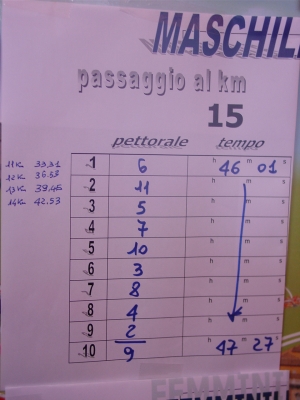 MASCHILI
passaggio al km
15
pettorale tempo
11K 33.31
12K 36.58
13K 39.46
14K 42.53
1 6 h 46 m 01 s
2 11 h m s
3 5 h m s
4 7 h m s
5 10 h m s
6 3 h m s
7 8 h m s
8 4 h m s
9 2 h m s
10 9 h 47 m 27 s
FEMMINI